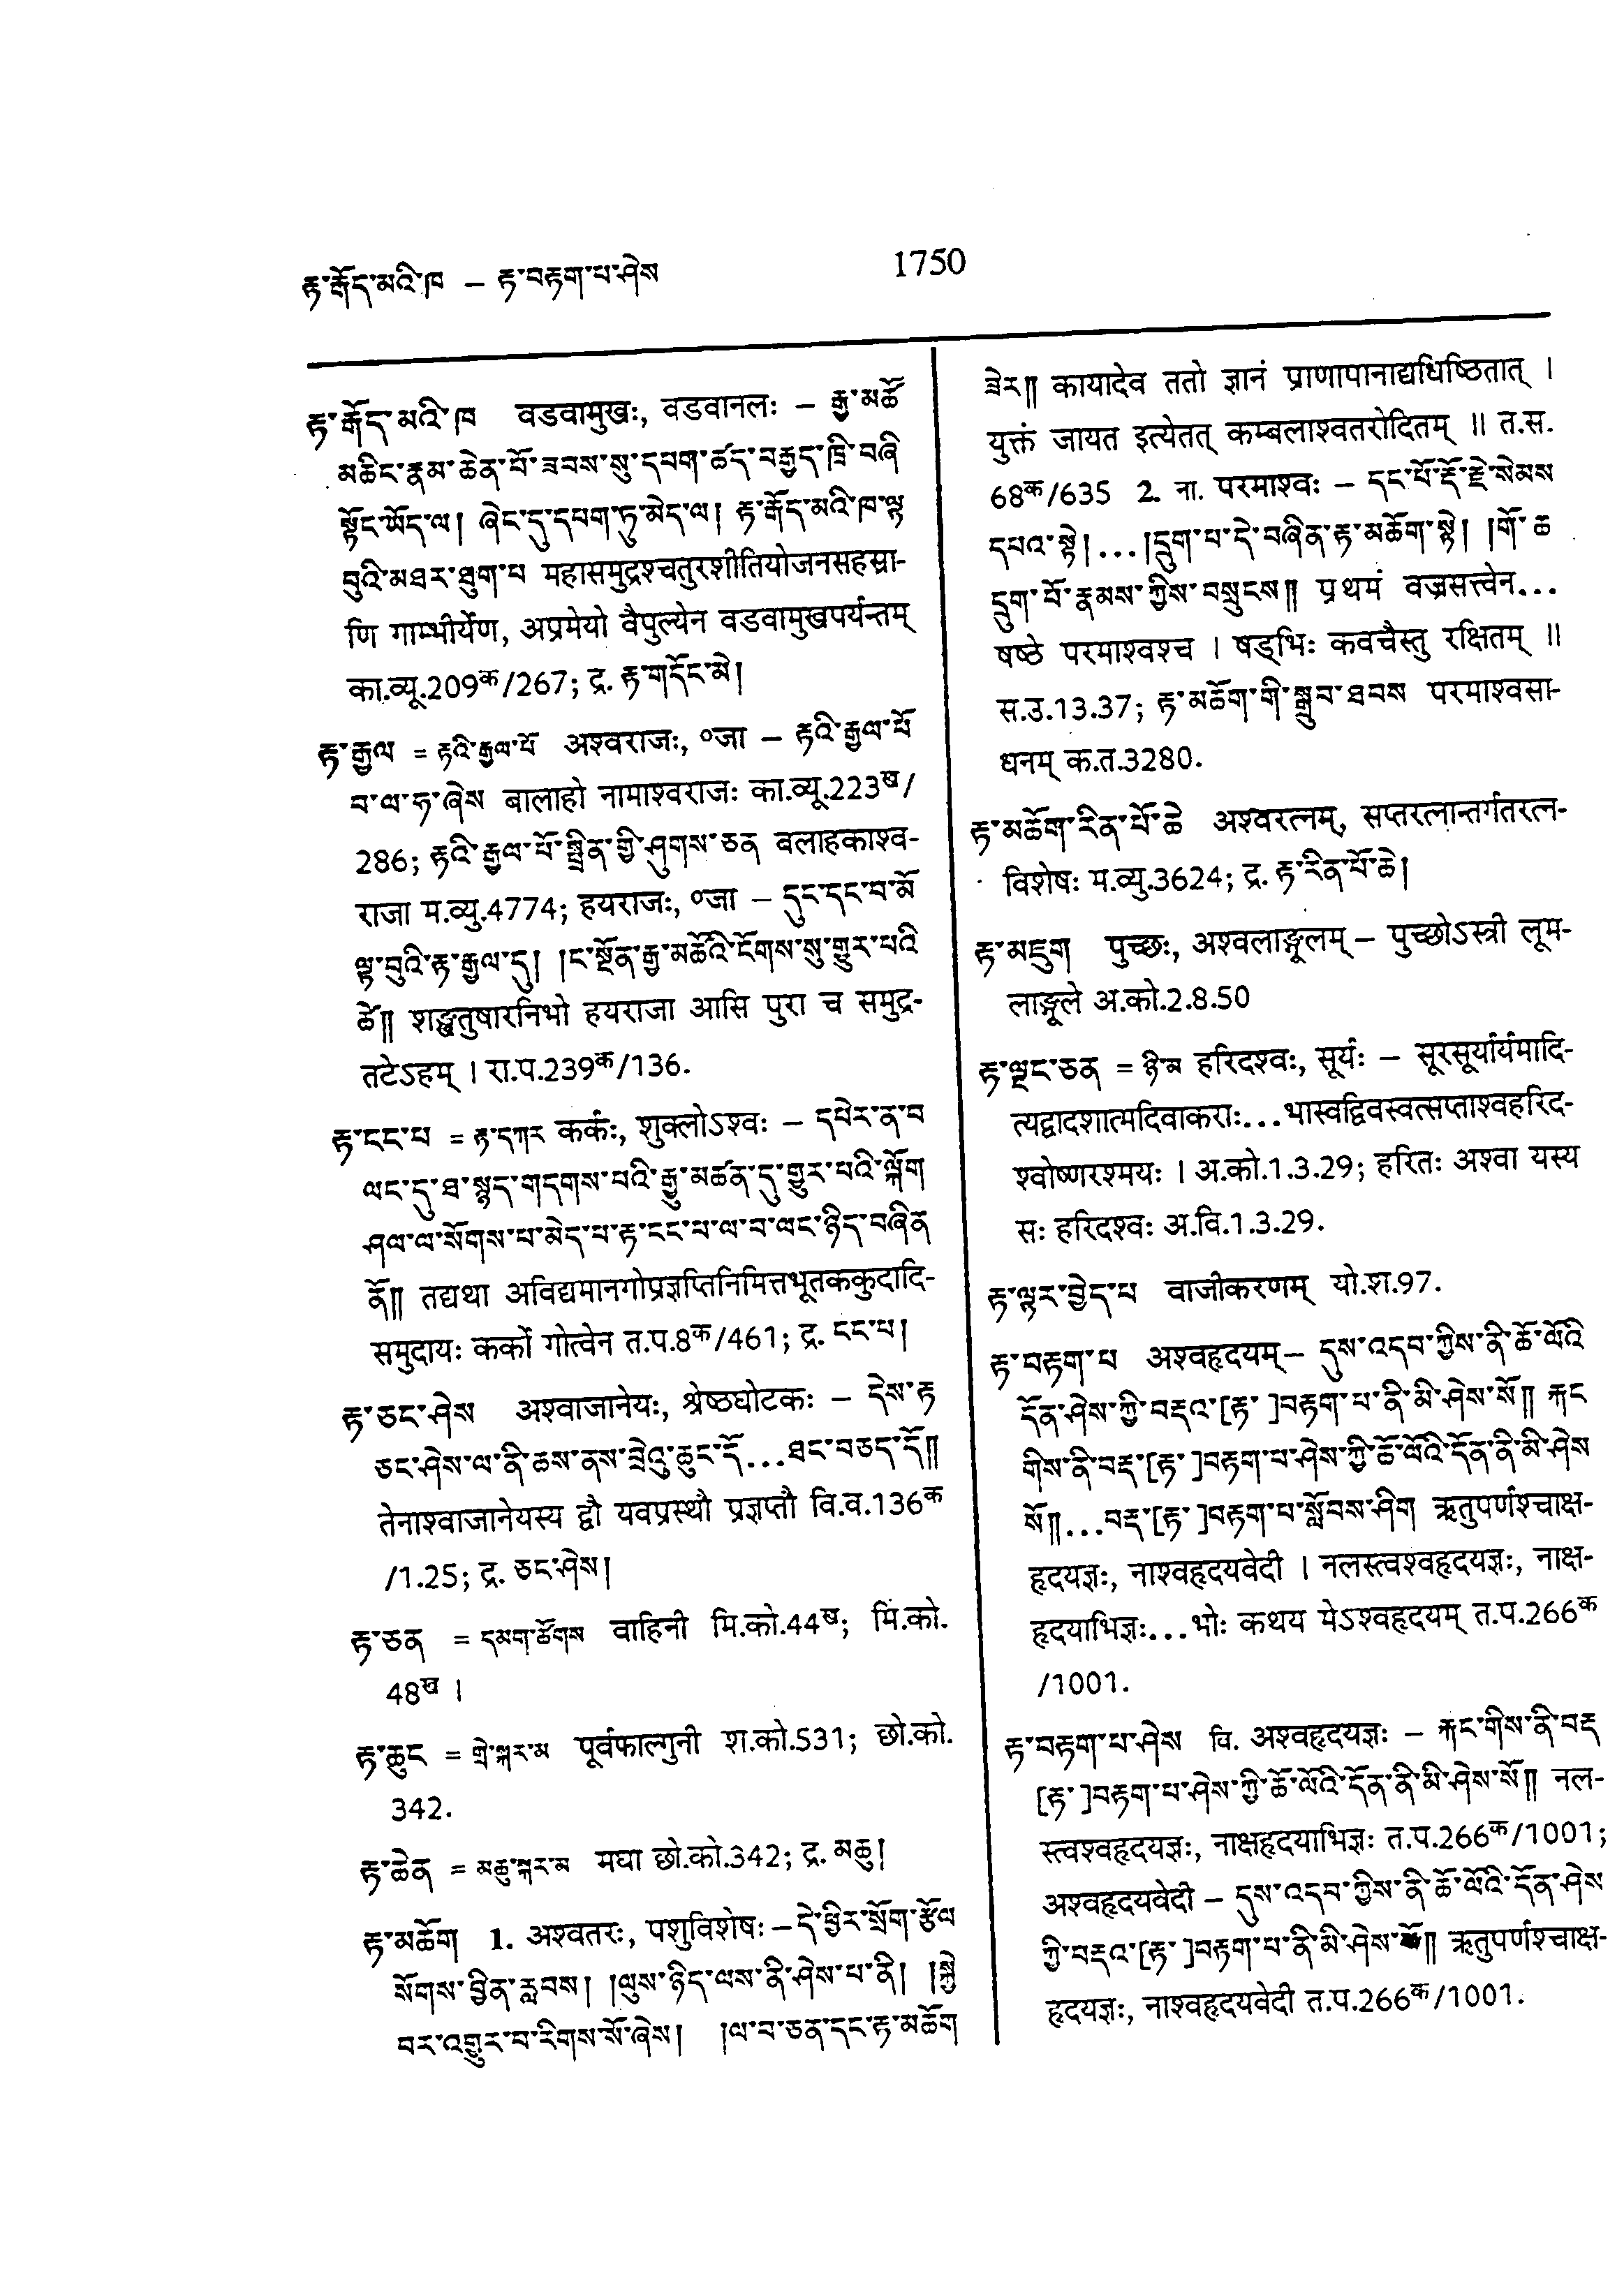 རྟ་རྒོད་མའི་ཁ – རྟ་བརྟག་པ་ཤེས
1750
རྟ་རྒོད་མའི་ཁ वडवामुखः, वडवानलः – རྒྱ་མཚོ
མཆིང་རྣམ་ཆེན་པོ་ཟབས་སུ་དཔག་ཚད་བརྒྱད་ཁྲི་བཞི
སྟོང་ཡོད་ལ། ཞེང་དུ་དཔག་ཏུ་མེད་ལ། རྟ་རྒོད་མའི་ཁ་ལྟ
བུའི་མཐར་ཐུག་པ महासमुद्रश्चतुरशीतियोजनसहस्रा-
णि गाम्भीर्येण, अप्रमेयो वैपुल्येन वडवामुखपर्यन्तम्
का.व्यू.209क/267; द्र. རྟ་གདོང་མེ།
རྟ་རྒྱལ = རྟའི་རྒྱལ་པོ अश्वराजः, ०जा – རྟའི་རྒྱལ་པོ
བ་ལ་ཧ་ཞེས बालाहो नामाश्वराजः का.व्यू.223ख/
286; རྟའི་རྒྱལ་པོ་སྤྲིན་གྱི་ཤུགས་ཅན वलाहकाश्व-
राजा म.व्यु.4774; हयराजः, ०जा – དུང་དང་བ་མོ
ལྟ་བུའི་རྟ་རྒྱལ་དུ། །ང་སྔོན་རྒྱ་མཚོའི་ངོགས་སུ་གྱུར་པའི
ཚེ༎ शङ्खतुषारनिभो हयराजा आसि पुरा च समुद्र-
तटेऽहम् । रा.प.239क/136.
རྟ་ངང་པ = རྟ་དཀར कर्कः, शुक्लोऽश्वः – དཔེར་ན་བ
ལང་དུ་ཐ་སྙད་གདགས་པའི་རྒྱུ་མཚན་དུ་གྱུར་པའི་ལྐོག
ཤལ་ལ་སོགས་པ་མེད་པ་རྟ་ངང་པ་ལ་བ་ལང་ཉིད་བཞིན
ནོ༎ तद्यथा अविद्यमानगोप्रज्ञप्तिनिमित्तभूतककुदादि-
समुदायः कर्को गोत्वेन त.प.8क/461; द्र. ངང་པ།
རྟ་ཅང་ཤེས अश्वाजानेयः, श्रेष्ठघोटकः – དེས་རྟ
ཅང་ཤེས་ལ་ནི་ཆས་ནས་བྲེའུ་ཆུང་དོ...ཐང་བཅད་དོ༎
तेनाश्वाजानेयस्य द्वौ यवप्रस्थौ प्रज्ञप्तौ वि.व.136क
/1.25; द्र. ཅང་ཤེས།
རྟ་ཅན = དམག་ཚོགས वाहिनी मि.को.44ख; मि.को.
48ख ।
རྟ་ཆུང = གྲེ་སྐར་མ पूर्वफाल्गुनी श.को.531; छो.को.
342.
རྟ་ཆེན = མཆུ་སྐར་མ मघा छो.को.342; द्र. མཆུ།
རྟ་མཆོག 1. अश्वतरः, पशुविशेषः – དེ་ཕྱིར་སྲོག་རྩོལ
སོགས་བྱིན་རླབས། །ལུས་ཉིད་ལས་ནི་ཤེས་པ་ནི། །སྐྱེ
བར་འགྱུར་བ་རིགས་སོ་ཞེས། །ལ་བ་ཅན་དང་རྟ་མཆོག
ཟེར༎ कायादेव ततो ज्ञानं प्राणापानाद्यधिष्ठितात् ।
युक्तं जायत इत्येतत् कम्बलाश्वतरोदितम् ॥ त.स.
68क/635 2. ना. परमाश्वः – དང་པོ་རྡོ་རྗེ་སེམས
དཔའ་སྟེ།...།དྲུག་པ་དེ་བཞིན་རྟ་མཆོག་སྟེ། །གོ་ཆ
དྲུག་པོ་རྣམས་ཀྱིས་བསྲུངས༎ प्रथमं वज्रसत्त्वेन...
षष्ठे परमाश्वश्च । षड्भिः कवचैस्तु रक्षितम् ॥
स.उ.13.37; རྟ་མཆོག་གི་སྒྲུབ་ཐབས परमाश्वसा-
धनम् क.त.3280.
རྟ་མཆོག་རིན་པོ་ཆེ अश्वरत्नम्, सप्तरत्नान्तर्गतरत्न-
विशेषः म.व्यु.3624; द्र. རྟ་རིན་པོ་ཆེ།
རྟ་མཇུག पुच्छः, अश्वलाङ्गूलम् – पुच्छोऽस्त्री लूम-
लाङ्गूले अ.को.2.8.50
རྟ་ལྗང་ཅན = ཉི་མ हरिदश्वः, सूर्यः – सूरसूर्यार्यमादि-
त्यद्वादशात्मदिवाकराः...भास्वद्विवस्वत्सप्ताश्वहरिद-
श्वोष्णरश्मयः । अ.को.1.3.29; हरितः अश्वा यस्य
सः हरिदश्वः अ.वि.1.3.29.
རྟ་ལྟར་བྱེད་པ वाजीकरणम् यो.श.97.
རྟ་བརྟག་པ अश्वहृदयम्– དུས་འདབ་ཀྱིས་ནི་ཆོ་ལོའི
དོན་ཤེས་ཀྱི་བརྡའ་[རྟ་ ]བརྟག་པ་ནི་མི་ཤེས་སོ༎ རྐང
གིས་ནི་བརྡ་[རྟ་ ]བརྟག་པ་ཤེས་ཀྱི་ཆོ་ལོའི་དོན་ནི་མི་ཤེས
སོ༎...བརྡ་[རྟ་ ]བརྟག་པ་སློབས་ཤིག ऋतुपर्णश्चाक्ष-
हृदयज्ञः, नाश्वहृदयवेदी । नलस्त्वश्वहृदयज्ञः, नाक्ष-
हृदयाभिज्ञः...भोः कथय मेऽश्वहृदयम् त.प.266क
/1001.
རྟ་བརྟག་པ་ཤེས वि. अश्वहृदयज्ञः – རྐང་གིས་ནི་བརྡ
[རྟ་ ]བརྟག་པ་ཤེས་ཀྱི་ཆོ་ལོའི་དོན་ནི་མི་ཤེས་སོ༎ नल-
स्त्वश्वहृदयज्ञः, नाक्षहृदयाभिज्ञः त.प.266क/1001;
अश्वहृदयवेदी – དུས་འདབ་ཀྱིས་ནི་ཆོ་ལོའི་དོན་ཤེས
ཀྱི་བརྡའ་[རྟ་ ]བརྟག་པ་ནི་མི་ཤེས་སོ༎ ऋतुपर्णश्चाक्ष-
हृदयज्ञः, नाश्वहृदयवेदी त.प.266क/1001.